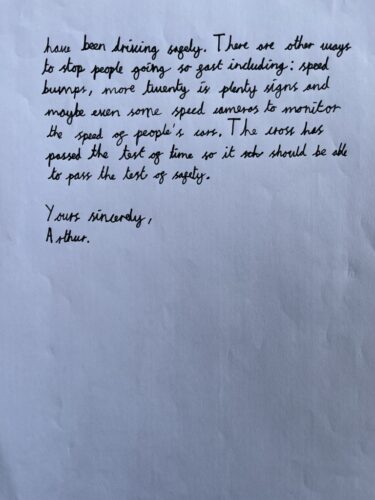 have been driving safely. There are other ways
to stop people going so fast including: speed
bumps, more twenty is plenty signs and
maybe even some speed cameras to monitor
the speed of people's cars. The cross has
passed the test of time so it should be able
to pass the test of safety.
Yours sincerely,
Arthur.